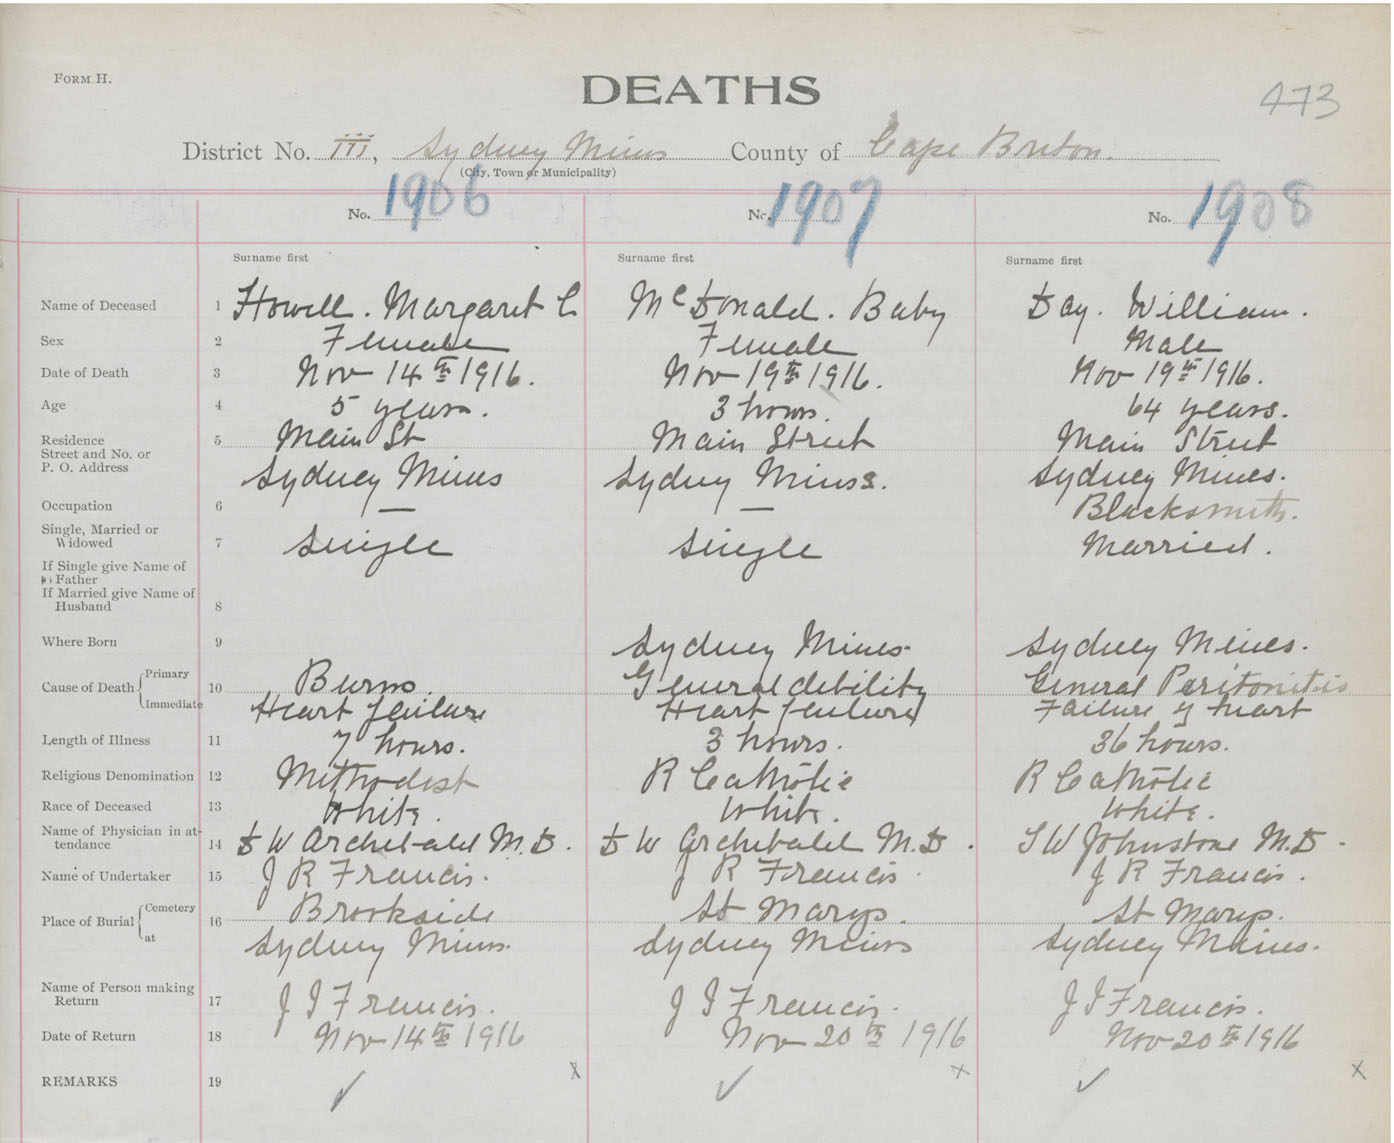 FORM H.
DEATHS
473
District No. III, Sydney Mines County of Cape Breton.
(City, Town or Municipality)
No. 1906 No. 1907 No. 1908
Surname first Surname first Surname first
Name of Deceased 1 Howell. Margaret C McDonald. Baby Day. William.
Sex 2 Female Female Male
Date of Death 3 Nov 14th 1916. Nov 19th 1916. Nov 19th 1916.
Age 4 5 years. 3 hours. 64 years.
Residence 5 Main St Main Street Main Street
Street and No. or
P. O. Address Sydney Mines Sydney Mines. Sydney Mines.
Occupation 6 — — Blacksmith.
Single, Married or
Widowed 7 Single Single Married.
If Single give Name of
Father
If Married give Name of
Husband 8
Where Born 9 Sydney Mines. Sydney Mines.
Cause of Death Primary 10 Burns. General debility General Peritonitis
Immediate Heart failure Heart failure Failure of heart
Length of Illness 11 7 hours. 3 hours. 36 hours.
Religious Denomination 12 Methodist R Catholic R Catholic
Race of Deceased 13 White. White. White.
Name of Physician in at-
tendance 14 D W Archibald M.D. D W Archibald M.D. S W Johnstone M.D.
Name of Undertaker 15 J R Francis. J R Francis. J R Francis.
Place of Burial Cemetery 16 Brookside St Marys. St Marys.
at Sydney Mines. Sydney Mines Sydney Mines.
Name of Person making
Return 17 J I Francis. J I Francis. J I Francis.
Date of Return 18 Nov 14th 1916 Nov 20th 1916 Nov 20th 1916
REMARKS 19 ✓ x ✓ x ✓ x